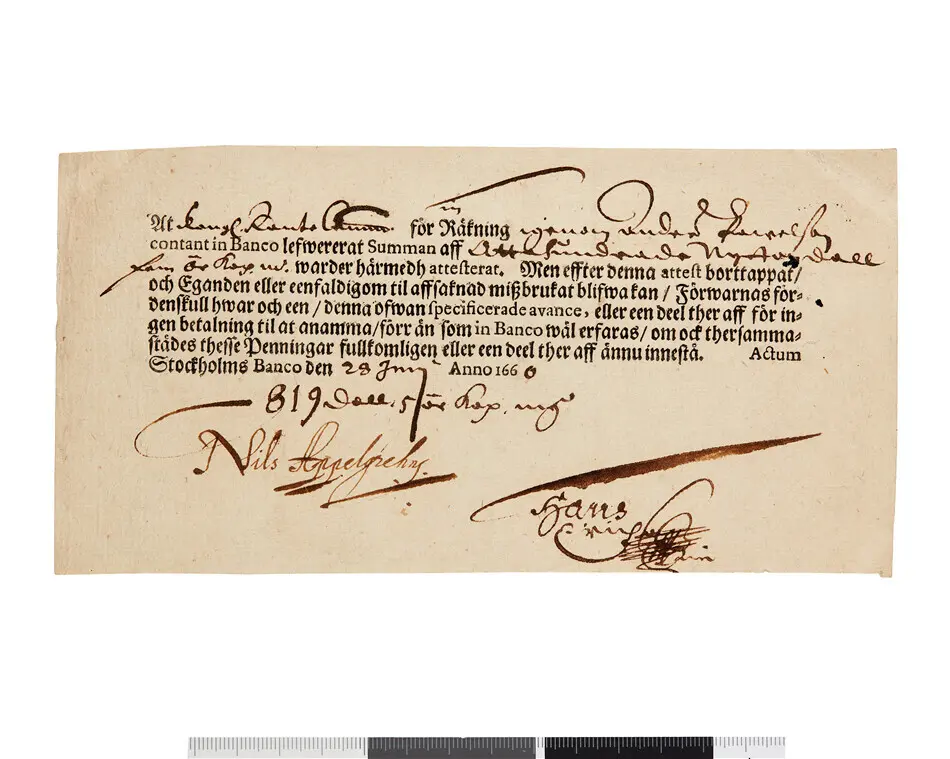 At Kongl. Räntekammn. för Räkning igenom Anders Pawelson
contant in Banco lefwererat Summan aff Otta hundrade Nijttan dall
fem ör Kop. m. warder härmedh attesterat. Men effter denna attest borttappat/
och Eganden eller eenfaldigom til affsaknad mißbrukat blifwa kan / Förwarnas för-
denskull hwar och een / denna ofwan specificerade avance, eller een deel ther aff för in-
gen betalning til at anamma/förr än som in Banco wäl erfaras/ om ock thersamma-
städes thesse Penningar fullkomligen eller een deel ther aff ännu innestå. Actum
Stockholms Banco den 28 Junij Anno 1660
819 dall. 5 ör Kop. mt
Nils Appelgrehn
Hans